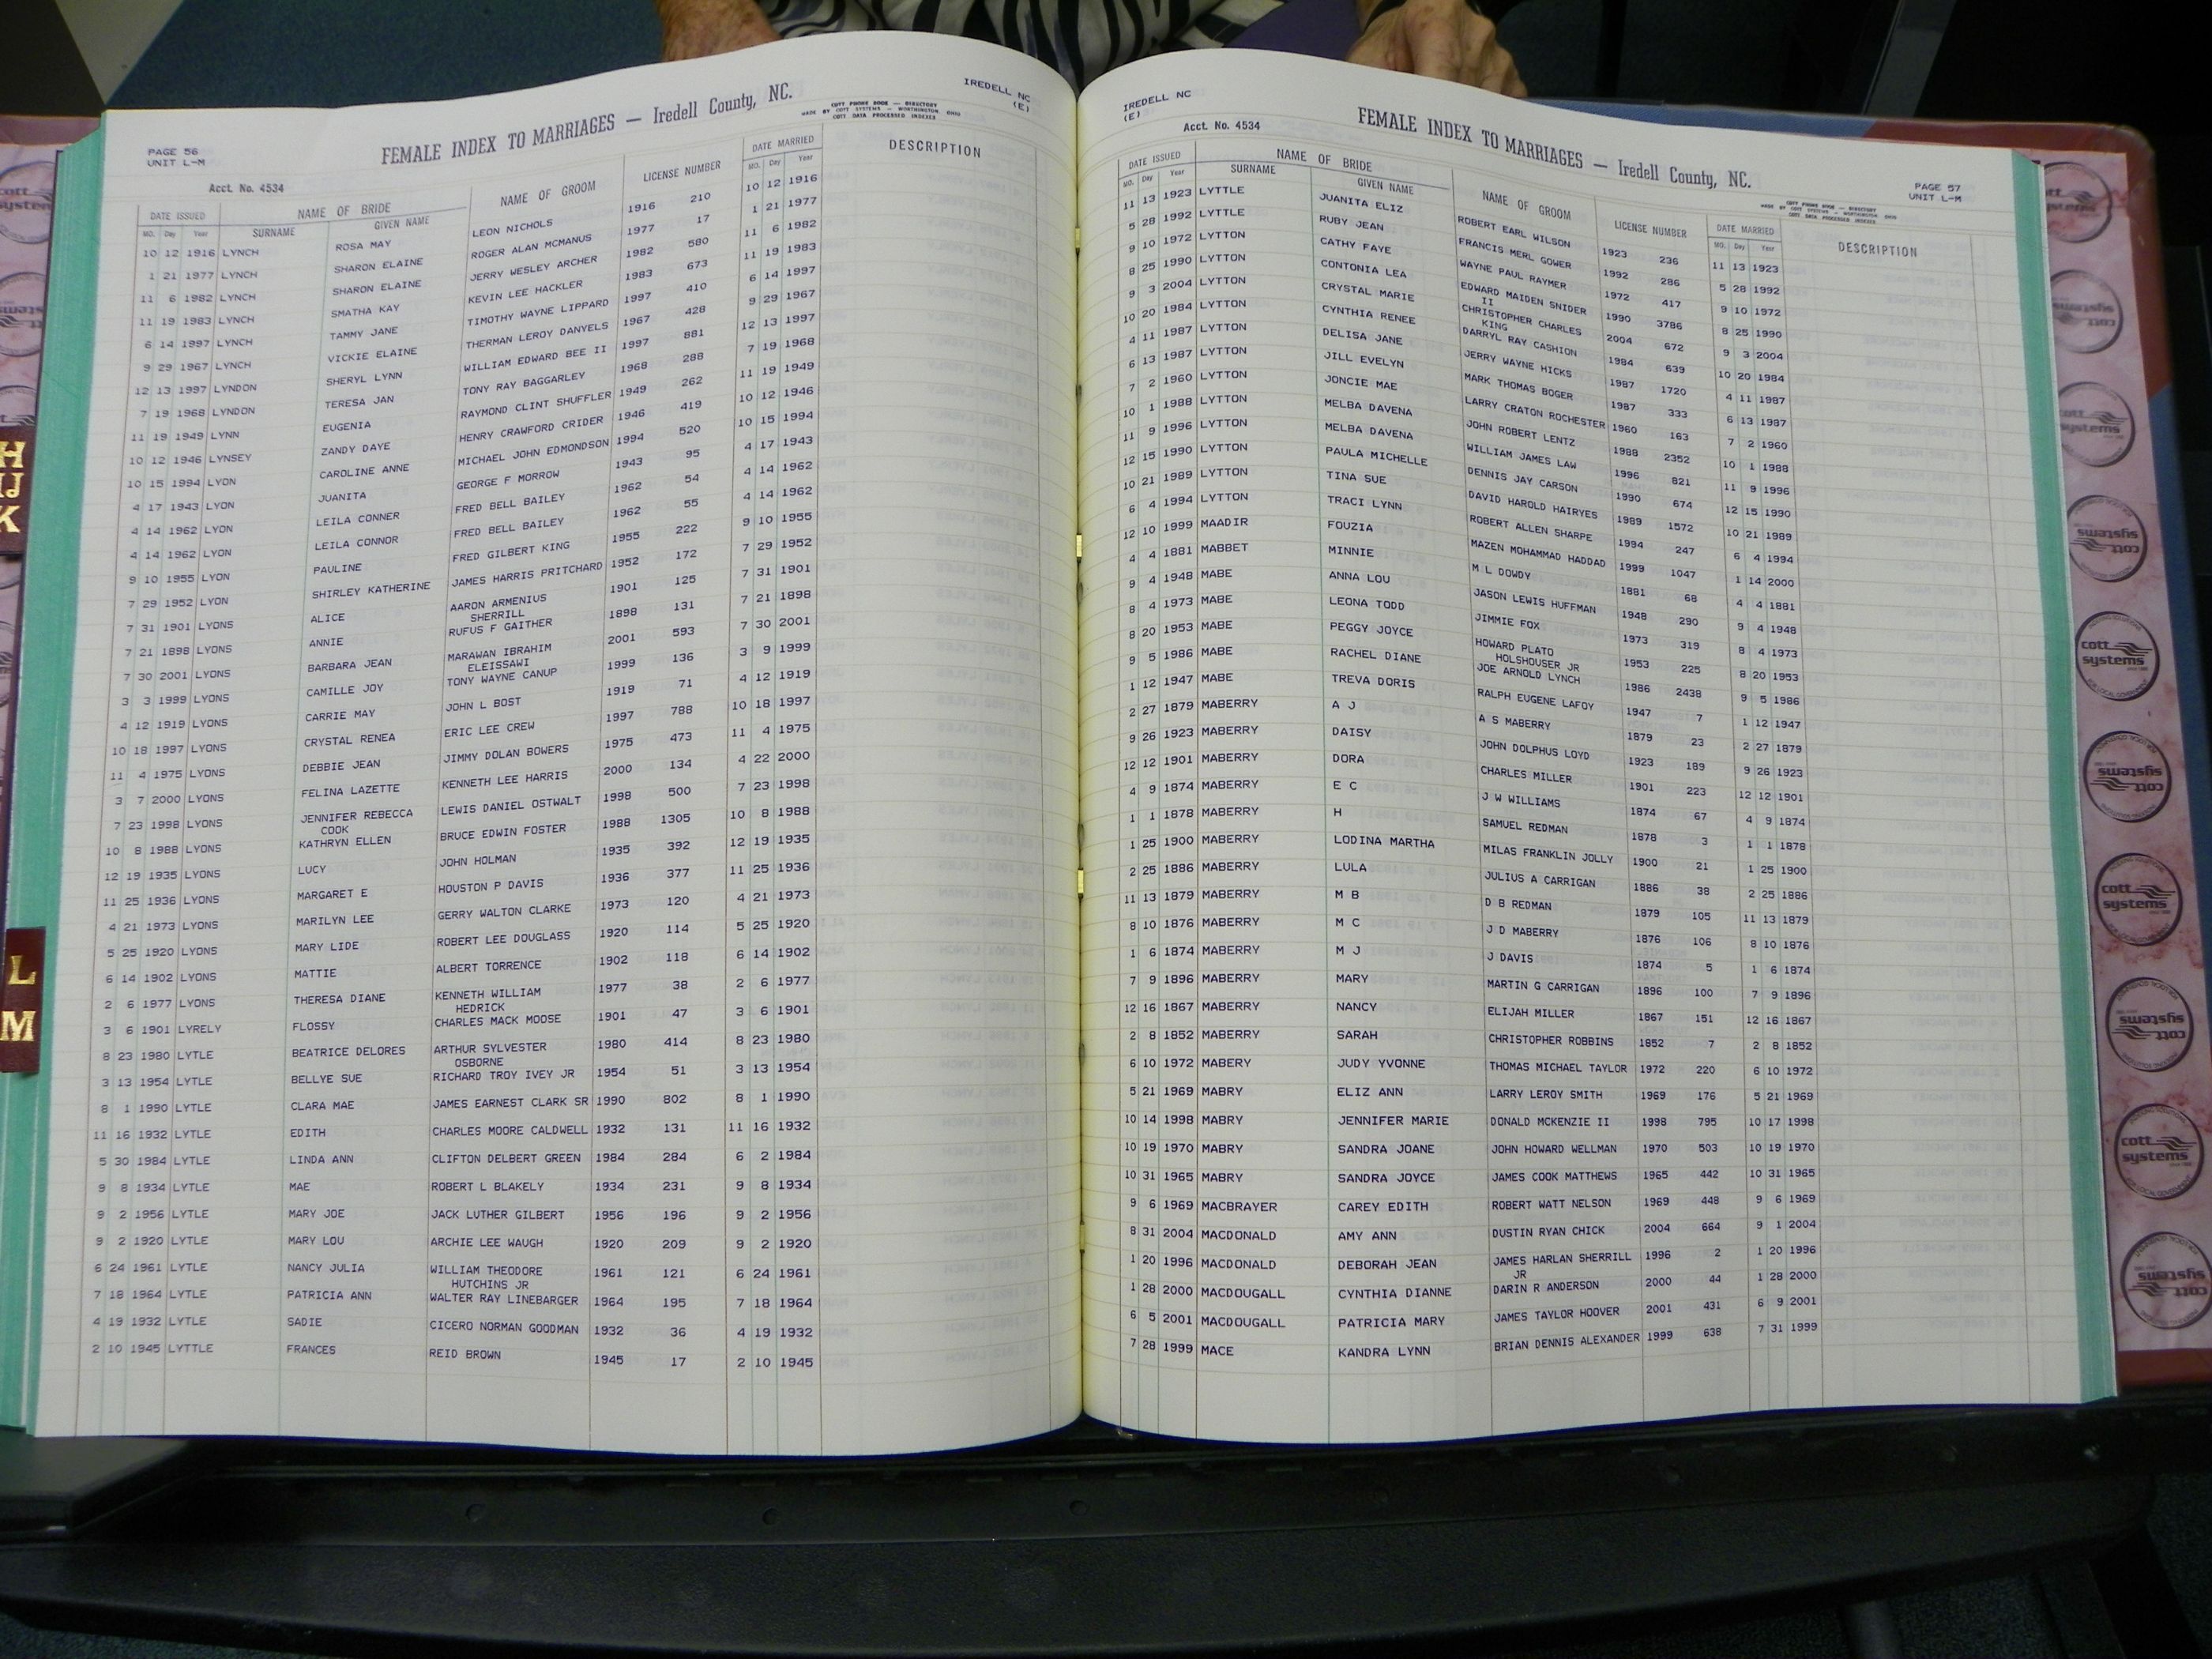 IREDELL NC
(E)
FEMALE INDEX TO MARRIAGES — Iredell County, NC.
COTT PHONE BOOK — DIRECTORY
MADE BY COTT SYSTEMS — WORTHINGTON OHIO
COTT DATA PROCESSED INDEXES
PAGE 56
UNIT L-M
Acct. No. 4534
DATE ISSUED NAME OF BRIDE NAME OF GROOM LICENSE NUMBER DATE MARRIED DESCRIPTION
MO. Day Year SURNAME GIVEN NAME MO. Day Year
10 12 1916 LYNCH ROSA MAY LEON NICHOLS 1916 210 10 12 1916
1 21 1977 LYNCH SHARON ELAINE ROGER ALAN MCMANUS 1977 17 1 21 1977
11 6 1982 LYNCH SHARON ELAINE JERRY WESLEY ARCHER 1982 580 11 6 1982
11 19 1983 LYNCH SMATHA KAY KEVIN LEE HACKLER 1983 673 11 19 1983
6 14 1997 LYNCH TAMMY JANE TIMOTHY WAYNE LIPPARD 1997 410 6 14 1997
9 29 1967 LYNCH VICKIE ELAINE THERMAN LEROY DANYELS 1967 428 9 29 1967
12 13 1997 LYNDON SHERYL LYNN WILLIAM EDWARD BEE II 1997 881 12 13 1997
7 19 1968 LYNDON TERESA JAN TONY RAY BAGGARLEY 1968 288 7 19 1968
11 19 1949 LYNN EUGENIA RAYMOND CLINT SHUFFLER 1949 262 11 19 1949
10 12 1946 LYNSEY ZANDY DAYE HENRY CRAWFORD CRIDER 1946 419 10 12 1946
10 15 1994 LYON CAROLINE ANNE MICHAEL JOHN EDMONDSON 1994 520 10 15 1994
4 17 1943 LYON JUANITA GEORGE F MORROW 1943 95 4 17 1943
4 14 1962 LYON LEILA CONNER FRED BELL BAILEY 1962 54 4 14 1962
4 14 1962 LYON LEILA CONNOR FRED BELL BAILEY 1962 55 4 14 1962
9 10 1955 LYON PAULINE FRED GILBERT KING 1955 222 9 10 1955
7 29 1952 LYON SHIRLEY KATHERINE JAMES HARRIS PRITCHARD 1952 172 7 29 1952
7 31 1901 LYONS ALICE AARON ARMENIUS 1901 125 7 31 1901
SHERRILL
7 21 1898 LYONS ANNIE RUFUS F GAITHER 1898 131 7 21 1898
7 30 2001 LYONS BARBARA JEAN MARAWAN IBRAHIM 2001 593 7 30 2001
ELEISSAWI
3 3 1999 LYONS CAMILLE JOY TONY WAYNE CANUP 1999 136 3 9 1999
4 12 1919 LYONS CARRIE MAY JOHN L BOST 1919 71 4 12 1919
10 18 1997 LYONS CRYSTAL RENEA ERIC LEE CREW 1997 788 10 18 1997
11 4 1975 LYONS DEBBIE JEAN JIMMY DOLAN BOWERS 1975 473 11 4 1975
3 7 2000 LYONS FELINA LAZETTE KENNETH LEE HARRIS 2000 134 4 22 2000
7 23 1998 LYONS JENNIFER REBECCA LEWIS DANIEL OSTWALT 1998 500 7 23 1998
COOK
10 8 1988 LYONS KATHRYN ELLEN BRUCE EDWIN FOSTER 1988 1305 10 8 1988
12 19 1935 LYONS LUCY JOHN HOLMAN 1935 392 12 19 1935
11 25 1936 LYONS MARGARET E HOUSTON P DAVIS 1936 377 11 25 1936
4 21 1973 LYONS MARILYN LEE GERRY WALTON CLARKE 1973 120 4 21 1973
5 25 1920 LYONS MARY LIDE ROBERT LEE DOUGLASS 1920 114 5 25 1920
6 14 1902 LYONS MATTIE ALBERT TORRENCE 1902 118 6 14 1902
2 6 1977 LYONS THERESA DIANE KENNETH WILLIAM 1977 38 2 6 1977
HEDRICK
3 6 1901 LYRELY FLOSSY CHARLES MACK MOOSE 1901 47 3 6 1901
8 23 1980 LYTLE BEATRICE DELORES ARTHUR SYLVESTER 1980 414 8 23 1980
OSBORNE
3 13 1954 LYTLE BELLYE SUE RICHARD TROY IVEY JR 1954 51 3 13 1954
8 1 1990 LYTLE CLARA MAE JAMES EARNEST CLARK SR 1990 802 8 1 1990
11 16 1932 LYTLE EDITH CHARLES MOORE CALDWELL 1932 131 11 16 1932
5 30 1984 LYTLE LINDA ANN CLIFTON DELBERT GREEN 1984 284 6 2 1984
9 8 1934 LYTLE MAE ROBERT L BLAKELY 1934 231 9 8 1934
9 2 1956 LYTLE MARY JOE JACK LUTHER GILBERT 1956 196 9 2 1956
9 2 1920 LYTLE MARY LOU ARCHIE LEE WAUGH 1920 209 9 2 1920
6 24 1961 LYTLE NANCY JULIA WILLIAM THEODORE 1961 121 6 24 1961
HUTCHINS JR
7 18 1964 LYTLE PATRICIA ANN WALTER RAY LINEBARGER 1964 195 7 18 1964
4 19 1932 LYTLE SADIE CICERO NORMAN GOODMAN 1932 36 4 19 1932
2 10 1945 LYTTLE FRANCES REID BROWN 1945 17 2 10 1945
IREDELL NC
(E)
Acct. No. 4534
FEMALE INDEX TO MARRIAGES — Iredell County, NC.
PAGE 57
UNIT L-M
COTT PHONE BOOK — DIRECTORY
MADE BY COTT SYSTEMS — WORTHINGTON OHIO
COTT DATA PROCESSED INDEXES
DATE ISSUED NAME OF BRIDE NAME OF GROOM LICENSE NUMBER DATE MARRIED DESCRIPTION
MO. Day Year SURNAME GIVEN NAME MO. Day Year
11 13 1923 LYTTLE JUANITA ELIZ ROBERT EARL WILSON 1923 236 11 13 1923
5 28 1992 LYTTLE RUBY JEAN FRANCIS MERL GOWER 1992 286 5 28 1992
9 10 1972 LYTTON CATHY FAYE WAYNE PAUL RAYMER 1972 417 9 10 1972
8 25 1990 LYTTON CONTONIA LEA EDWARD MAIDEN SNIDER 1990 3786 8 25 1990
II
9 3 2004 LYTTON CRYSTAL MARIE CHRISTOPHER CHARLES 2004 672 9 3 2004
KING
10 20 1984 LYTTON CYNTHIA RENEE DARRYL RAY CASHION 1984 639 10 20 1984
4 11 1987 LYTTON DELISA JANE JERRY WAYNE HICKS 1987 1720 4 11 1987
6 13 1987 LYTTON JILL EVELYN MARK THOMAS BOGER 1987 333 6 13 1987
7 2 1960 LYTTON JONCIE MAE LARRY CRATON ROCHESTER 1960 163 7 2 1960
10 1 1988 LYTTON MELBA DAVENA JOHN ROBERT LENTZ 1988 2352 10 1 1988
11 9 1996 LYTTON MELBA DAVENA WILLIAM JAMES LAW 1996 821 11 9 1996
12 15 1990 LYTTON PAULA MICHELLE DENNIS JAY CARSON 1990 674 12 15 1990
10 21 1989 LYTTON TINA SUE DAVID HAROLD HAIRYES 1989 1572 10 21 1989
6 4 1994 LYTTON TRACI LYNN ROBERT ALLEN SHARPE 1994 247 6 4 1994
12 10 1999 MAADIR FOUZIA MAZEN MOHAMMAD HADDAD 1999 1047 1 14 2000
4 4 1881 MABBET MINNIE M L DOWDY 1881 68 4 4 1881
9 4 1948 MABE ANNA LOU JASON LEWIS HUFFMAN 1948 290 9 4 1948
8 4 1973 MABE LEONA TODD JIMMIE FOX 1973 319 8 4 1973
8 20 1953 MABE PEGGY JOYCE HOWARD PLATO 1953 225 8 20 1953
HOLSHOUSER JR
9 5 1986 MABE RACHEL DIANE JOE ARNOLD LYNCH 1986 2438 9 5 1986
1 12 1947 MABE TREVA DORIS RALPH EUGENE LAFOY 1947 7 1 12 1947
2 27 1879 MABERRY A J A S MABERRY 1879 23 2 27 1879
9 26 1923 MABERRY DAISY JOHN DOLPHUS LOYD 1923 189 9 26 1923
12 12 1901 MABERRY DORA CHARLES MILLER 1901 223 12 12 1901
4 9 1874 MABERRY E C J W WILLIAMS 1874 67 4 9 1874
1 1 1878 MABERRY H SAMUEL REDMAN 1878 3 1 1 1878
1 25 1900 MABERRY LODINA MARTHA MILAS FRANKLIN JOLLY 1900 21 1 25 1900
2 25 1886 MABERRY LULA JULIUS A CARRIGAN 1886 38 2 25 1886
11 13 1879 MABERRY M B D B REDMAN 1879 105 11 13 1879
8 10 1876 MABERRY M C J D MABERRY 1876 106 8 10 1876
1 6 1874 MABERRY M J J DAVIS 1874 5 1 6 1874
7 9 1896 MABERRY MARY MARTIN G CARRIGAN 1896 100 7 9 1896
12 16 1867 MABERRY NANCY ELIJAH MILLER 1867 151 12 16 1867
2 8 1852 MABERRY SARAH CHRISTOPHER ROBBINS 1852 7 2 8 1852
6 10 1972 MABERY JUDY YVONNE THOMAS MICHAEL TAYLOR 1972 220 6 10 1972
5 21 1969 MABRY ELIZ ANN LARRY LEROY SMITH 1969 176 5 21 1969
10 14 1998 MABRY JENNIFER MARIE DONALD MCKENZIE II 1998 795 10 17 1998
10 19 1970 MABRY SANDRA JOANE JOHN HOWARD WELLMAN 1970 503 10 19 1970
10 31 1965 MABRY SANDRA JOYCE JAMES COOK MATTHEWS 1965 442 10 31 1965
9 6 1969 MACBRAYER CAREY EDITH ROBERT WATT NELSON 1969 448 9 6 1969
8 31 2004 MACDONALD AMY ANN DUSTIN RYAN CHICK 2004 664 9 1 2004
1 20 1996 MACDONALD DEBORAH JEAN JAMES HARLAN SHERRILL 1996 2 1 20 1996
JR
1 28 2000 MACDOUGALL CYNTHIA DIANNE DARIN R ANDERSON 2000 44 1 28 2000
6 5 2001 MACDOUGALL PATRICIA MARY JAMES TAYLOR HOOVER 2001 431 6 9 2001
7 28 1999 MACE KANDRA LYNN BRIAN DENNIS ALEXANDER 1999 638 7 31 1999
H
IJ
K
L
M
cott
systems
cott
systems
cott
systems
cott
systems